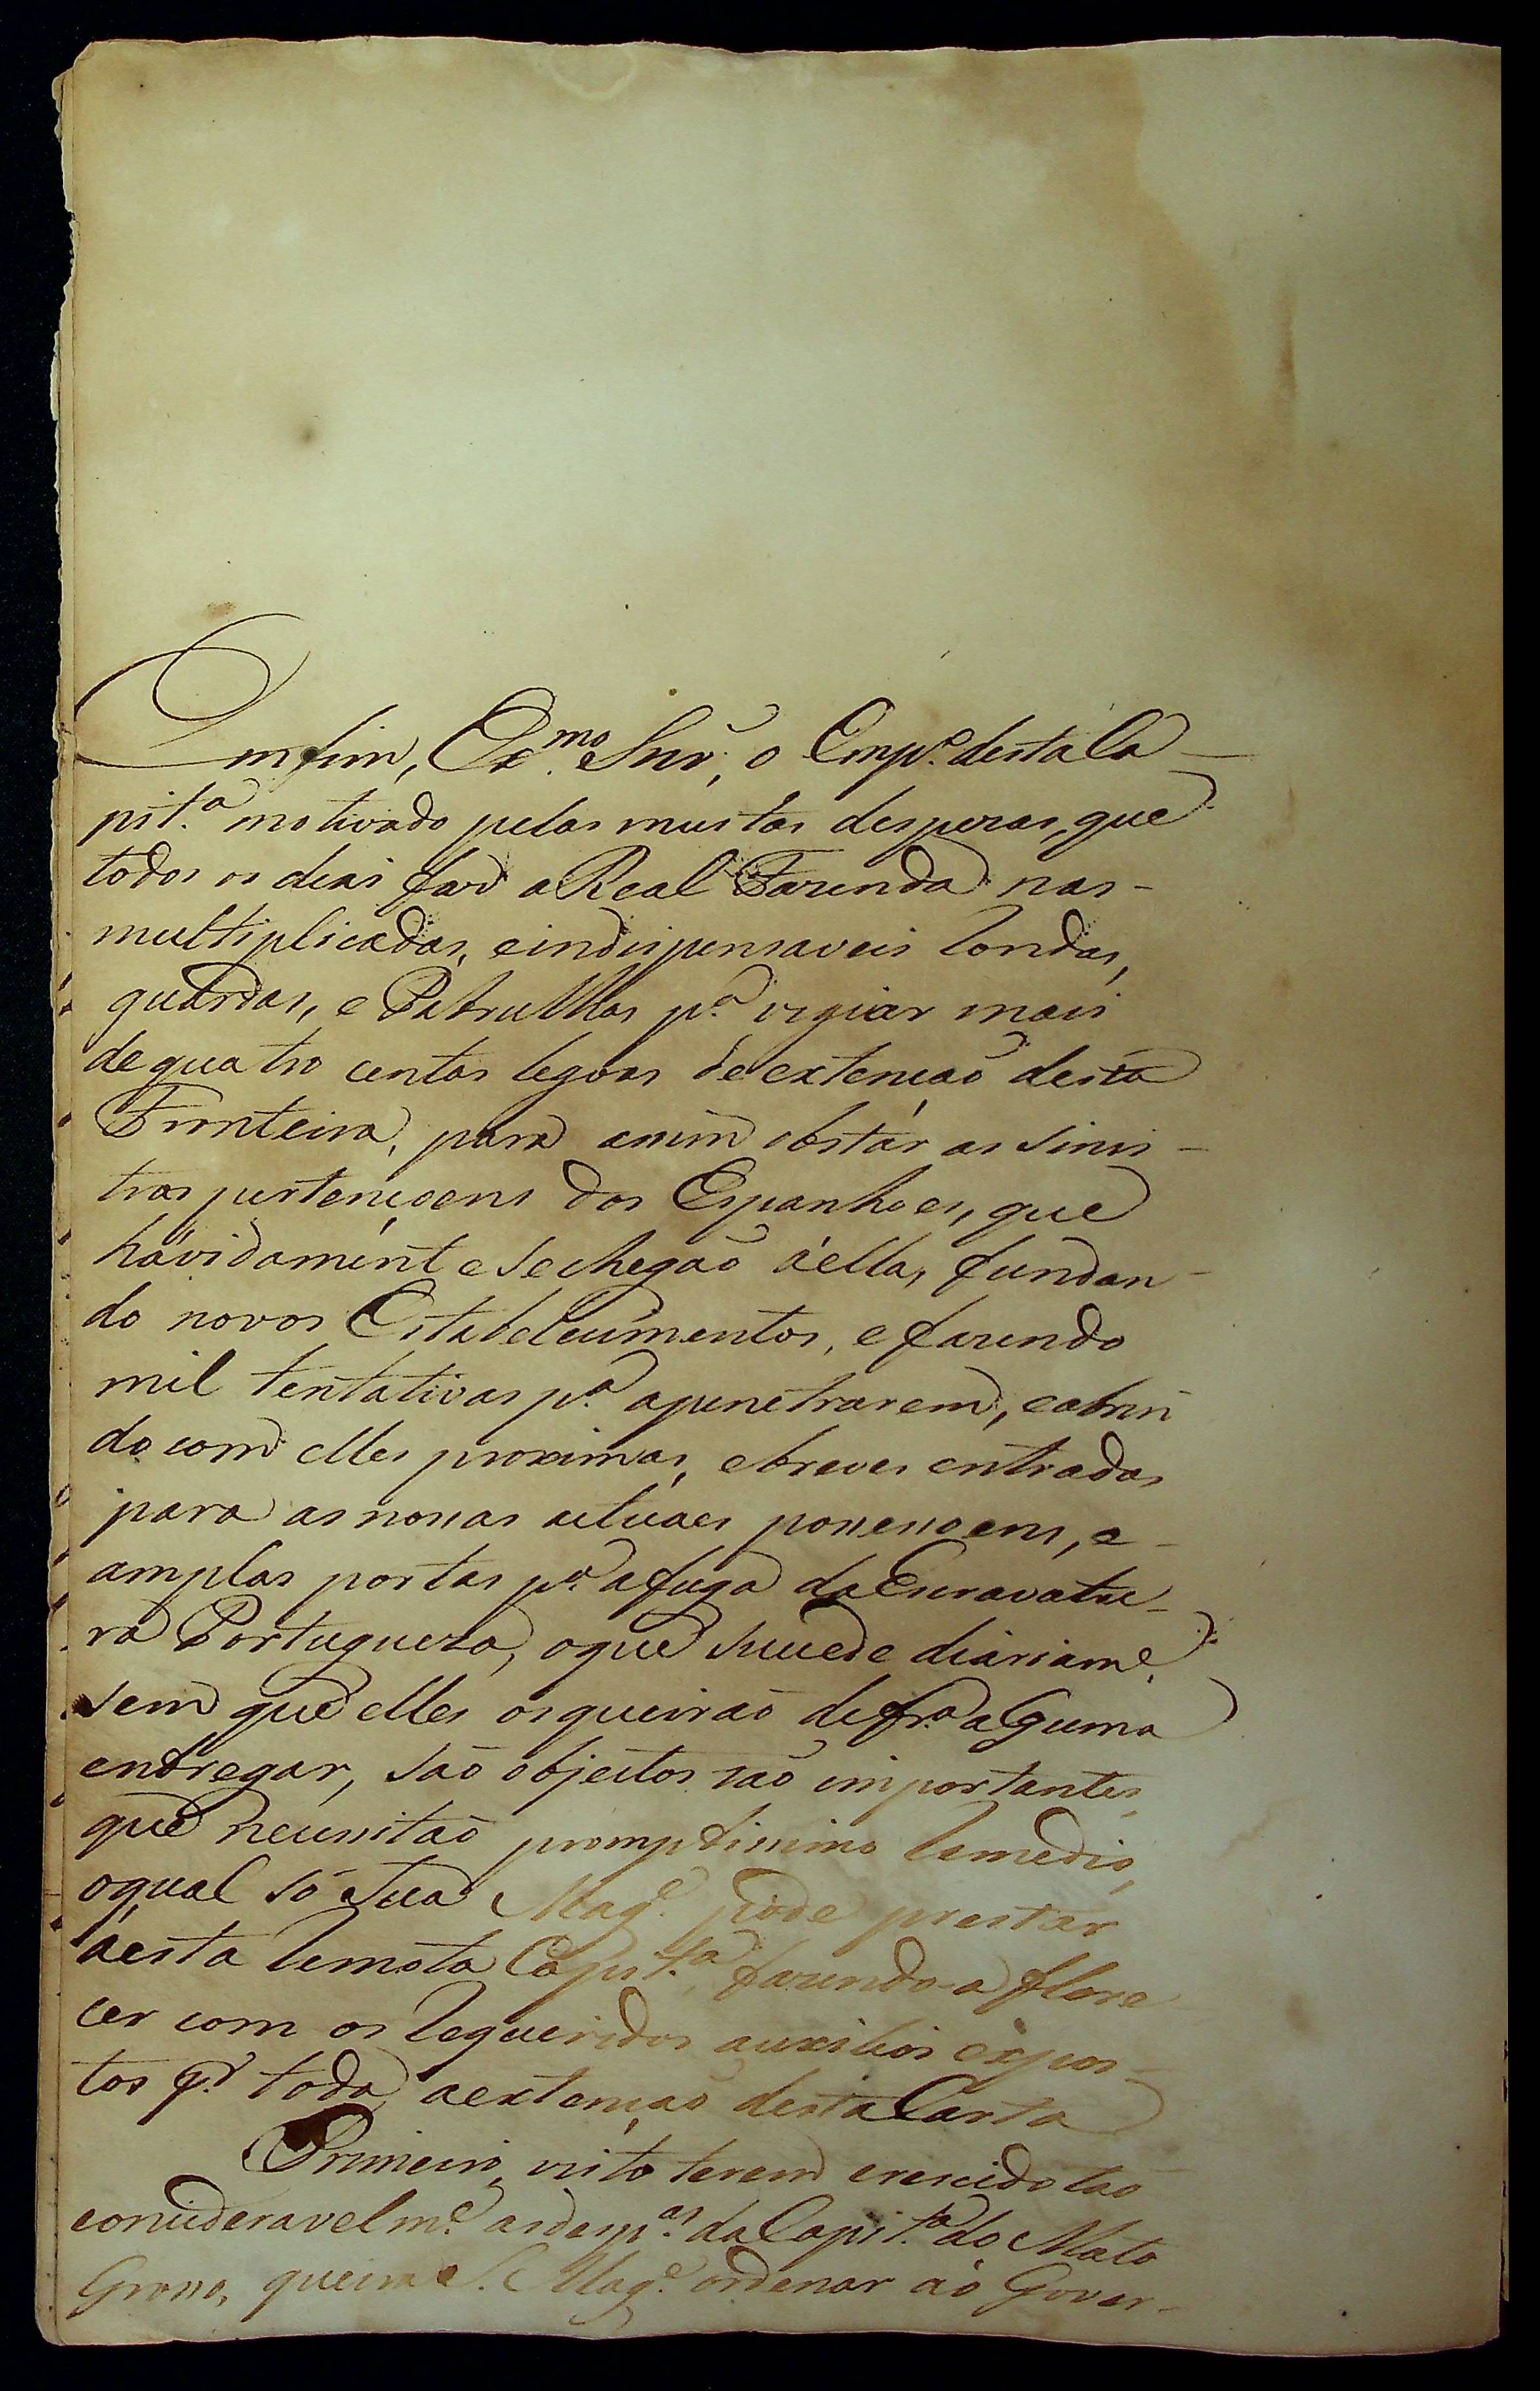 Em fim, Ex.mo Snr, o Emp.o desta Ca-
pit.a motivado pelas muitas despezas, que
todos os dias faz a Real Fazenda nas-
multiplicadas, e indispensaveis Rondas,
guardas, e Patrulhas p.a vigiar mais
de quatro centas legoas de extenção desta
Fronteira, para assim obstar as sinis-
tras pertençoens dos Espanhoes, que
hávidamente se chegão áella, fundan-
do novos Estabelecimentos, e fazendo
mil tentativas p.a apenetrarem, eabrin
do com elles proximas, ebreves entradas
para as nossas actuaes possessoens, e-
amplas portas p.a afuga da Escravatu-
ra Portugueza, oque sucede diáriam.e
sem que elles os queirão de fr.a alguma
entregar, são objectos tão importantes,
que necessitão promptissimo Remedio,
oqual só Sua Mag.e póde prestar
áesta Remota Capit.a, fazendo-a flore
cer com os Requeridos auxilios expos-
tos p.r toda aextenção desta Carta
Primeiro, visto terem crescido tão
consideravelm.e as desp.as da Capit.a do Mato
Grosso, queira S. Mag.e ordenar áo Gover-